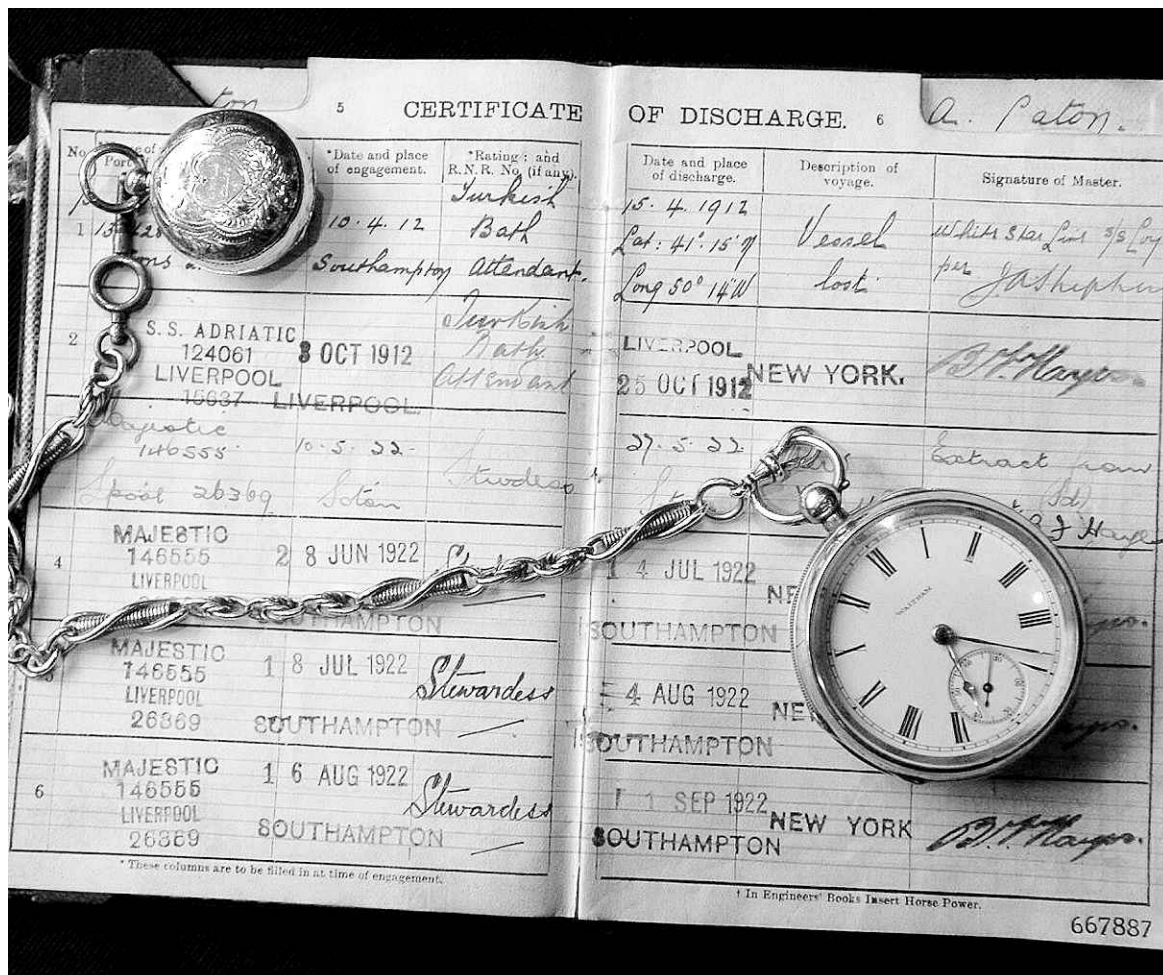 5 CERTIFICATE OF DISCHARGE. 6 A. Paton.
No
*Date and place of engagement.
*Rating; and R.N.R. No. (if any).
Date and place of discharge.
Description of voyage.
Signature of Master.
1
10.4.12
Southampton
Turkish
Bath
Attendant.
15.4.1912
Lat: 41°.15'N
Long 50° 14'W
Vessel
lost
White Star Line
per
2
S.S. ADRIATIC
124061
LIVERPOOL
15637
8 OCT 1912
LIVERPOOL.
Turkish
Bath
Attendant
LIVERPOOL
25 OCT 1912
NEW YORK.
Majestic
146555
Spool 26369
10.5.22.
Soton
Stewardess
27.5.22
Extract from
4
MAJESTIC
146555
LIVERPOOL
2 8 JUN 1922
SOUTHAMPTON
1 4 JUL 1922
SOUTHAMPTON
MAJESTIC
146555
LIVERPOOL
26369
1 8 JUL 1922
SOUTHAMPTON
Stewardess
4 AUG 1922
SOUTHAMPTON
6
MAJESTIC
146555
LIVERPOOL
26369
1 6 AUG 1922
SOUTHAMPTON
Stewardess
1 SEP 1922
SOUTHAMPTON
NEW YORK
WALTHAM
* These columns are to be filled in at time of engagement.
† In Engineers' Books Insert Horse Power.
667887